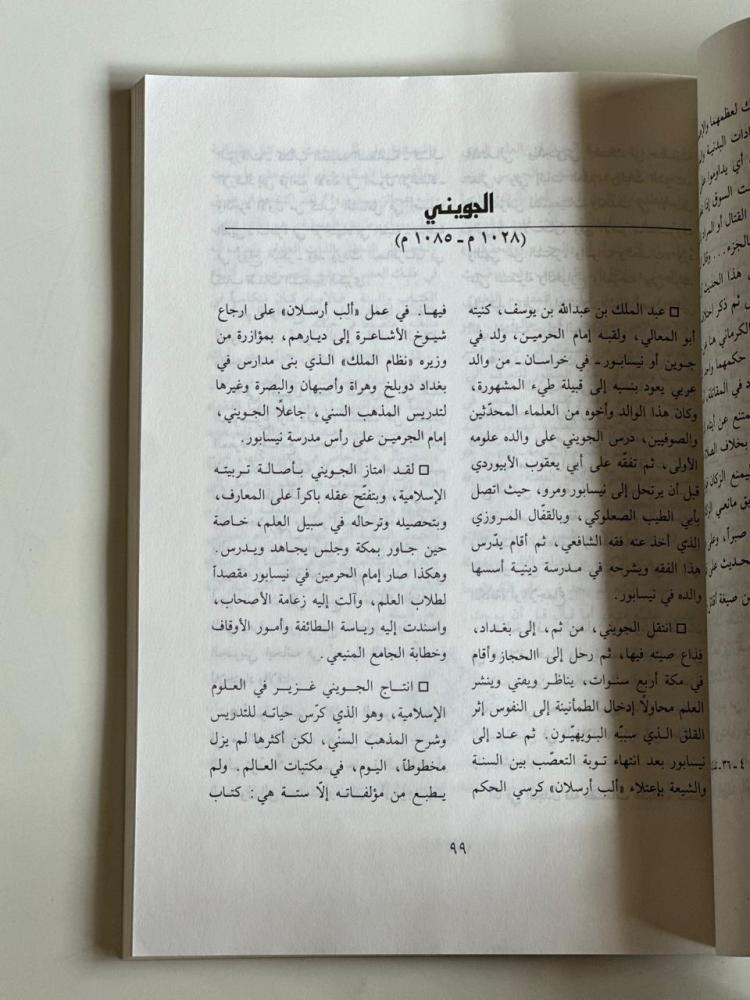 الجويني
(١٠٢٨ م - ١٠٨٥ م)
□ عبد الملك بن عبدالله بن يوسف، كنيته
أبو المعالي، ولقبه إمام الحرمين، ولد في
جوين أو نيسابور ـ في خراسان ـ من والد
عربي يعود بنسبه إلى قبيلة طيء المشهورة،
وكان هذا الوالد وأخوه من العلماء المحدّثين
والصوفيين، درس الجويني على والده علومه
الأولى، ثم تفقّه على أبي يعقوب الأبيوردي
قبل أن يرتحل إلى نيسابور ومرو، حيث اتصل
بأبي الطيب الصعلوكي، وبالقفّال المروزي
الذي أخذ عنه فقه الشافعي، ثم أقام يدّرس
هذا الفقه ويشرحه في مدرسة دينية أسسها
والده في نيسابور.
□ انتقل الجويني، من ثم، إلى بغداد،
فذاع صيته فيها، ثم رحل إلى االحجاز وأقام
في مكة أربع سنوات، يناظر ويفتي وينشر
العلم محاولًا إدخال الطمأنينة إلى النفوس إثر
القلق الذي سببّه البويهيّون. ثم عاد إلى
نيسابور بعد انتهاء توبة التعصّب بين السنة
والشيعة بإعتلاء «ألب أرسلان» كرسي الحكم
فيها. في عمل «ألب أرسلان» على ارجاع
شيوخ الأشاعرة إلى ديارهم، بمؤازرة من
وزيره «نظام الملك» الذي بنى مدارس في
بغداد دوبلخ وهراة وأصبهان والبصرة وغيرها
لتدريس المذهب السني، جاعلًا الجويني،
إمام الجرمين على رأس مدرسة نيسابور.
□ لقد امتاز الجويني بأصالة تربيته
الإسلامية، وبتفتّح عقله باكرأ على المعارف،
وبتحصيله وترحاله في سبيل العلم، خاصة
حين جاور بمكة وجلس يجاهد ويدرس.
وهكذا صار إمام الحرمين في نيسابور مقصدأ
لطلاب العلم، وآلت إليه زعامة الأصحاب،
واسندت إليه رياسة الطائفة وأمور الأوقاف
وخطابة الجامع المنيعي.
□ انتاج الجويني غزير في العلوم
الإسلامية، وهو الذي كرّس حياته للتدريس
وشرح المذهب السنّي، لكن أكثرها لم يزل
مخطوطأ، اليوم، في مكتبات العالم. ولم
يطبع من مؤلفاته إلّا ستة هي: كتاب
٩٩